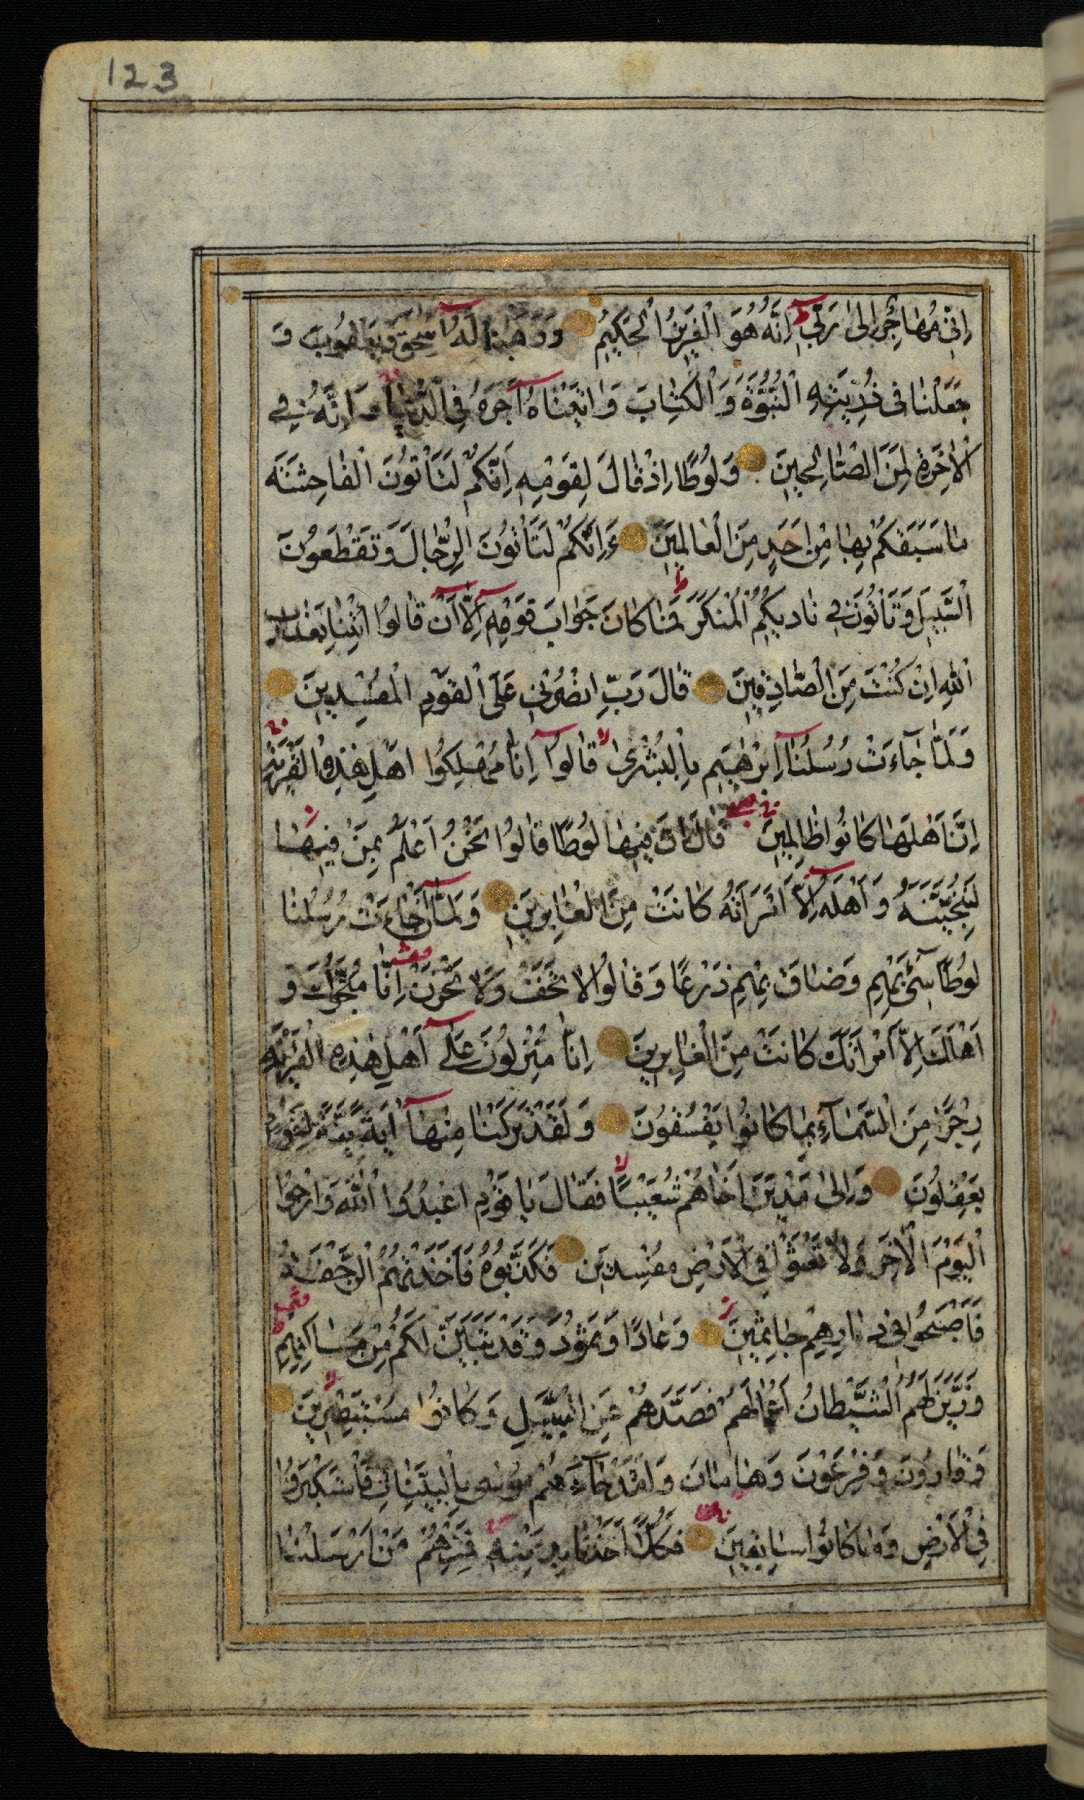 123
اِنّي مُهَاجِرٌ اِلىٰ رَبّي اِنَّهُ هُوَ الْعَزيزُ الْحَكيمُ وَوَهَبْنَا لَهُ اِسْحٰقَ وَيَعْقُوبَ وَ
جَعَلْنَا في ذُرِّيَّتِهِ النُّبُوَّةَ وَالْكِتَابَ وَاٰتَيْنَاهُ اَجْرَهُ فِي الدُّنْيَا وَاِنَّهُ فِي
الْاٰخِرَةِ لَمِنَ الصَّالِحينَ وَلُوطًا اِذْ قَالَ لِقَوْمِهِ اِنَّكُمْ لَتَأْتُونَ الْفَاحِشَةَ
مَا سَبَقَكُمْ بِهَا مِنْ اَحَدٍ مِنَ الْعَالَمينَ ءَاِنَّكُمْ لَتَأْتُونَ الرِّجَالَ وَتَقْطَعُونَ
السَّبيلَ وَتَأْتُونَ في نَاديكُمُ الْمُنْكَرَ فَمَا كَانَ جَوَابَ قَوْمِهِ اِلَّا اَنْ قَالُوا ائْتِنَا بِعَذَابِ
اللّٰهِ اِنْ كُنْتَ مِنَ الصَّادِقينَ قَالَ رَبِّ انْصُرْني عَلَى الْقَوْمِ الْمُفْسِدينَ
وَلَمَّا جَاءَتْ رُسُلُنَا اِبْرٰهيمَ بِالْبُشْرىٰ قَالُوا اِنَّا مُهْلِكُوا اَهْلِ هٰذِهِ الْقَرْيَةِ
اِنَّ اَهْلَهَا كَانُوا ظَالِمينَ قَالَ اِنَّ فيهَا لُوطًا قَالُوا نَحْنُ اَعْلَمُ بِمَنْ فيهَا
لَنُنَجِّيَنَّهُ وَاَهْلَهُ اِلَّا امْرَاَتَهُ كَانَتْ مِنَ الْغَابِرينَ وَلَمَّا اَنْ جَاءَتْ رُسُلُنَا
لُوطًا سيءَ بِهِمْ وَضَاقَ بِهِمْ ذَرْعًا وَقَالُوا لَا تَخَفْ وَلَا تَحْزَنْ اِنَّا مُنَجُّوكَ وَ
اَهْلَكَ اِلَّا امْرَاَتَكَ كَانَتْ مِنَ الْغَابِرينَ اِنَّا مُنْزِلُونَ عَلىٰ اَهْلِ هٰذِهِ الْقَرْيَةِ
رِجْزًا مِنَ السَّمَاءِ بِمَا كَانُوا يَفْسُقُونَ وَلَقَدْ تَرَكْنَا مِنْهَا اٰيَةً بَيِّنَةً لِقَوْمٍ
يَعْقِلُونَ وَاِلىٰ مَدْيَنَ اَخَاهُمْ شُعَيْبًا فَقَالَ يَا قَوْمِ اعْبُدُوا اللّٰهَ وَارْجُوا
الْيَوْمَ الْاٰخِرَ وَلَا تَعْثَوْا فِي الْاَرْضِ مُفْسِدينَ فَكَذَّبُوهُ فَاَخَذَتْهُمُ الرَّجْفَةُ
فَاَصْبَحُوا في دَارِهِمْ جَاثِمينَ وَعَادًا وَثَمُودَ وَقَدْ تَبَيَّنَ لَكُمْ مِنْ مَسَاكِنِهِمْ
وَزَيَّنَ لَهُمُ الشَّيْطَانُ اَعْمَالَهُمْ فَصَدَّهُمْ عَنِ السَّبيلِ وَكَانُوا مُسْتَبْصِرينَ
وَقَارُونَ وَفِرْعَوْنَ وَهَامَانَ وَلَقَدْ جَاءَهُمْ مُوسٰى بِالْبَيِّنَاتِ فَاسْتَكْبَرُوا
فِي الْاَرْضِ وَمَا كَانُوا سَابِقينَ فَكُلًّا اَخَذْنَا بِذَنْبِهِ فَمِنْهُمْ مَنْ اَرْسَلْنَا